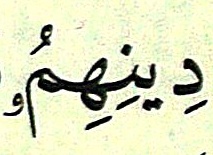 دِينِهِمُۥ